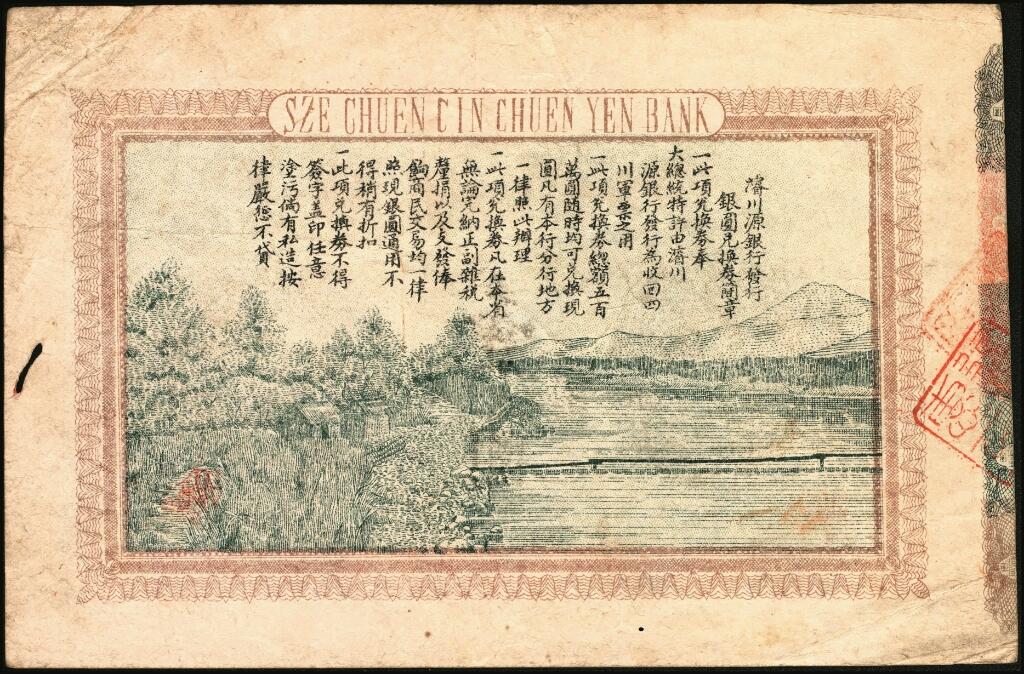 SZE CHUEN CIN CHUEN YEN BANK
濬川源銀行發行
銀圓兑換券簡章
一此項兑換券奉
大總統特許由濬川
源銀行發行為收回四
川軍票之用
一此項兑換券總額五百
萬圓隨時均可兑換現
圓凡有本行分行地方
一律照此辦理
一此項兑換券凡在本省
無論完納正副雜稅
釐捐以及支發俸
餉商民交易均一律
照現銀圓通用不
得稍有折扣
一此項兑換券不得
簽字盖印任意
塗污倘有私造按
律嚴懲不貸